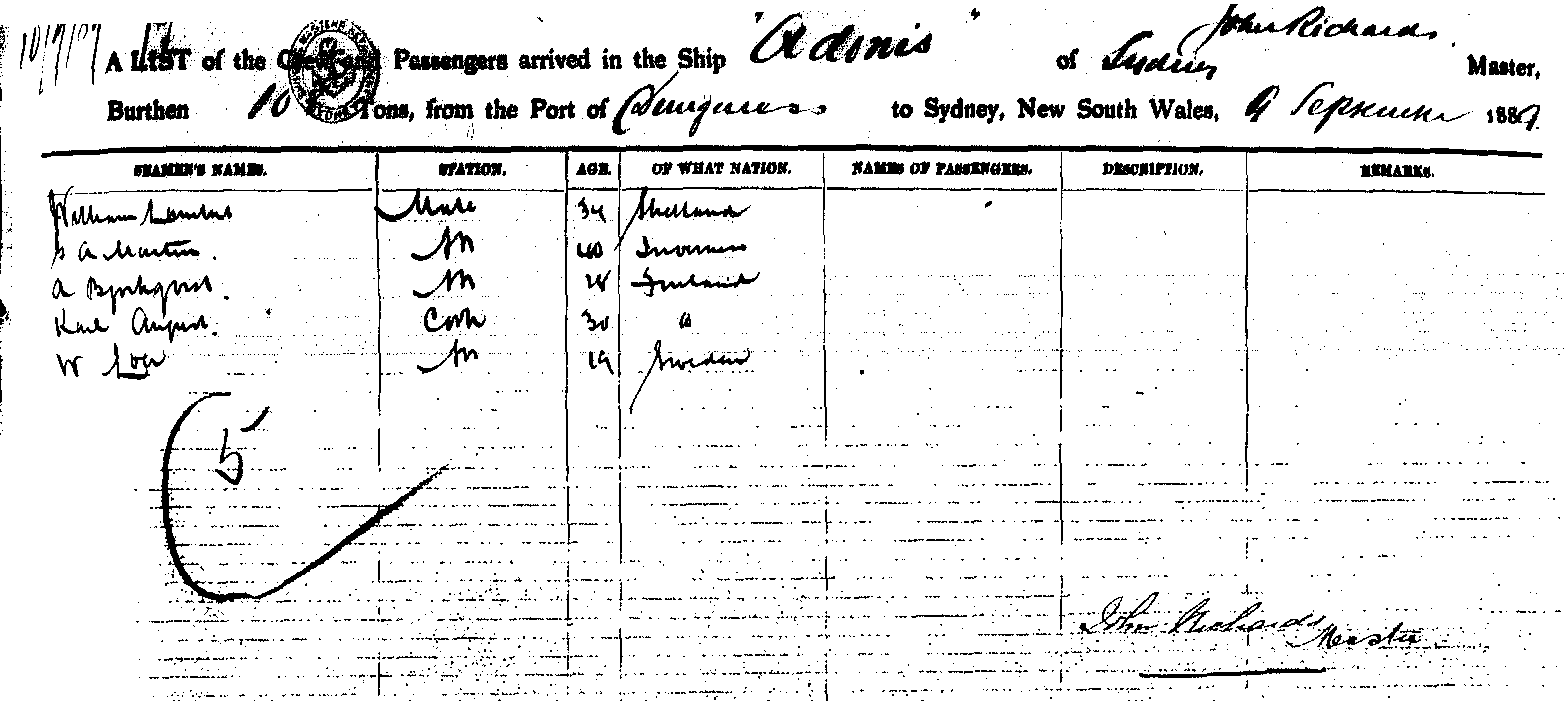 10/9/87
John Richards
A LIST of the Crew and Passengers arrived in the Ship "Adonis" of Sydney Master,
Burthen Tons, from the Port of to Sydney, New South Wales, 9 September 1887
SEAMEN'S NAMES. STATION. AGE. OF WHAT NATION. NAMES OF PASSENGERS. DESCRIPTION. REMARKS.
William Lambert Mate 34 Shetland
A Martin. 40 Inverness
A Bjorkqvist. 28 Finland
Karl August. Cook 30 "
W 19 Sweden
5
John Richards Master